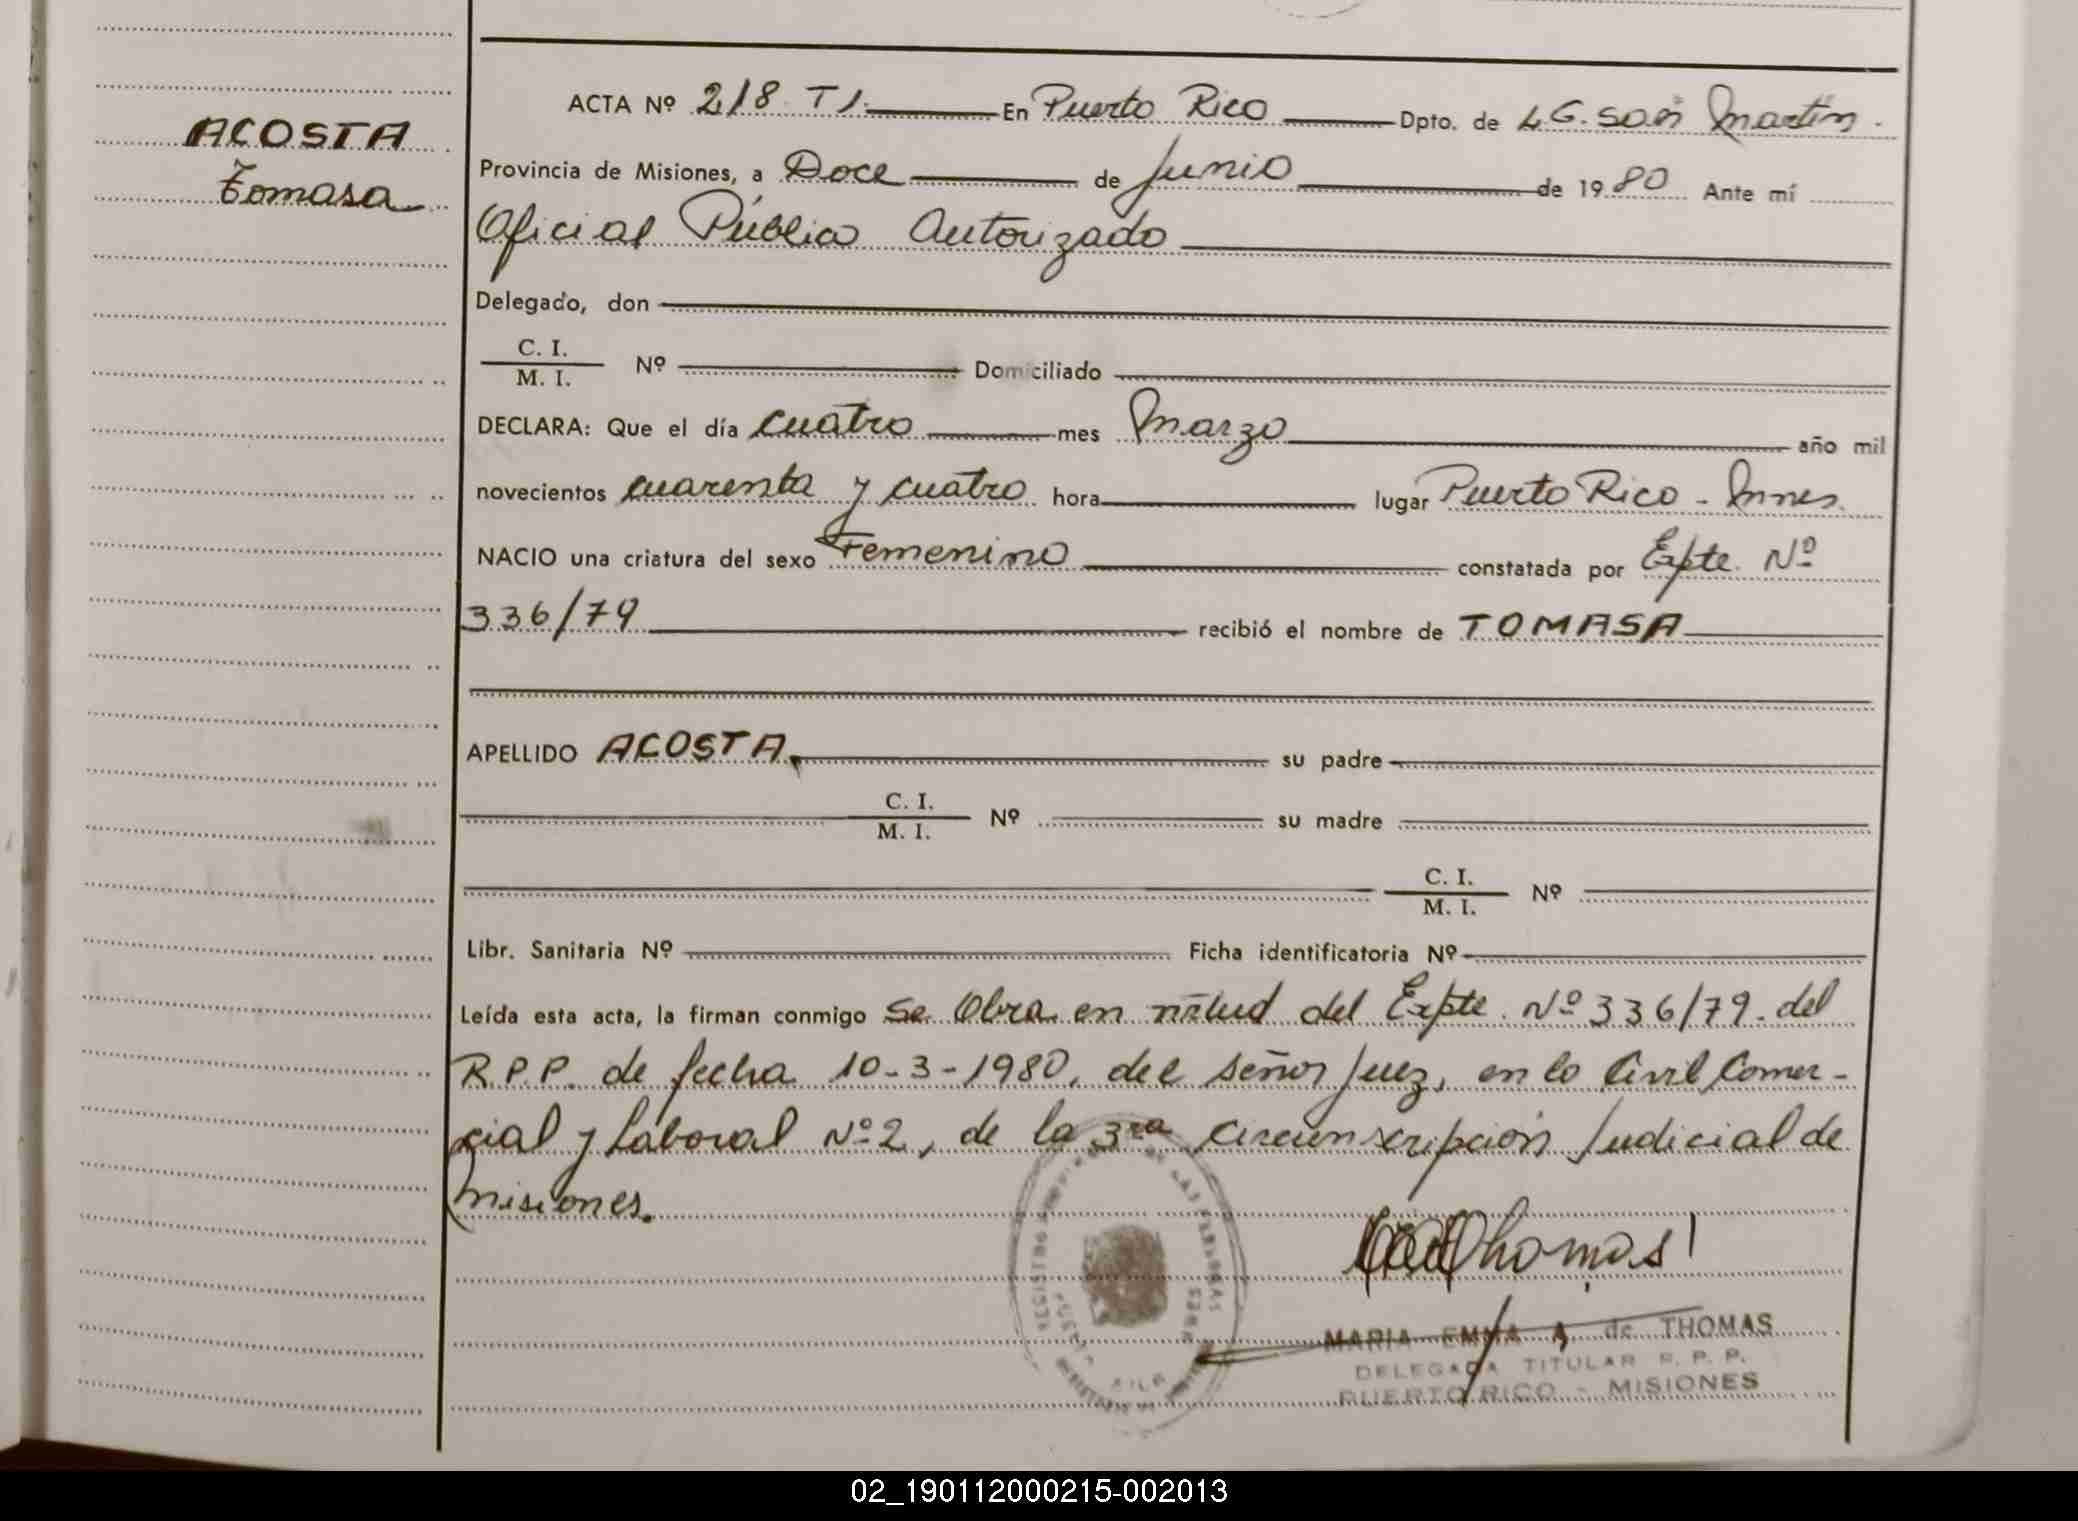 ACOSTA
Tomasa
ACTA Nº 218 T1. En Puerto Rico Dpto. de L G. San Martin.
Provincia de Misiones, a Doce de Junio de 1980 Ante mí
Oficial Público Autorizado
Delegado, don
C. I.
M. I. Nº Domiciliado
DECLARA: Que el día cuatro mes Marzo año mil
novecientos cuarenta y cuatro hora lugar Puerto Rico - Mnes.
NACIO una criatura del sexo Femenino constatada por Expte. Nº
336/79 recibió el nombre de TOMASA
APELLIDO ACOSTA su padre
C. I.
M. I. Nº su madre
C. I.
M. I. Nº
Libr. Sanitaria Nº Ficha identificatoria Nº
Leída esta acta, la firman conmigo Se Obra en del Expte. Nº 336/79. del
R.P.P. de fecha 10-3-1980, del señor Juez, en lo Civil Comer-
cial y Laboral Nº 2, de la 3ra circunscripción Judicial de
Misiones.
Thomas
MARIA EMMA A. de THOMAS
DELEGADA TITULAR R. P. P.
PUERTO RICO - MISIONES
02_190112000215-002013